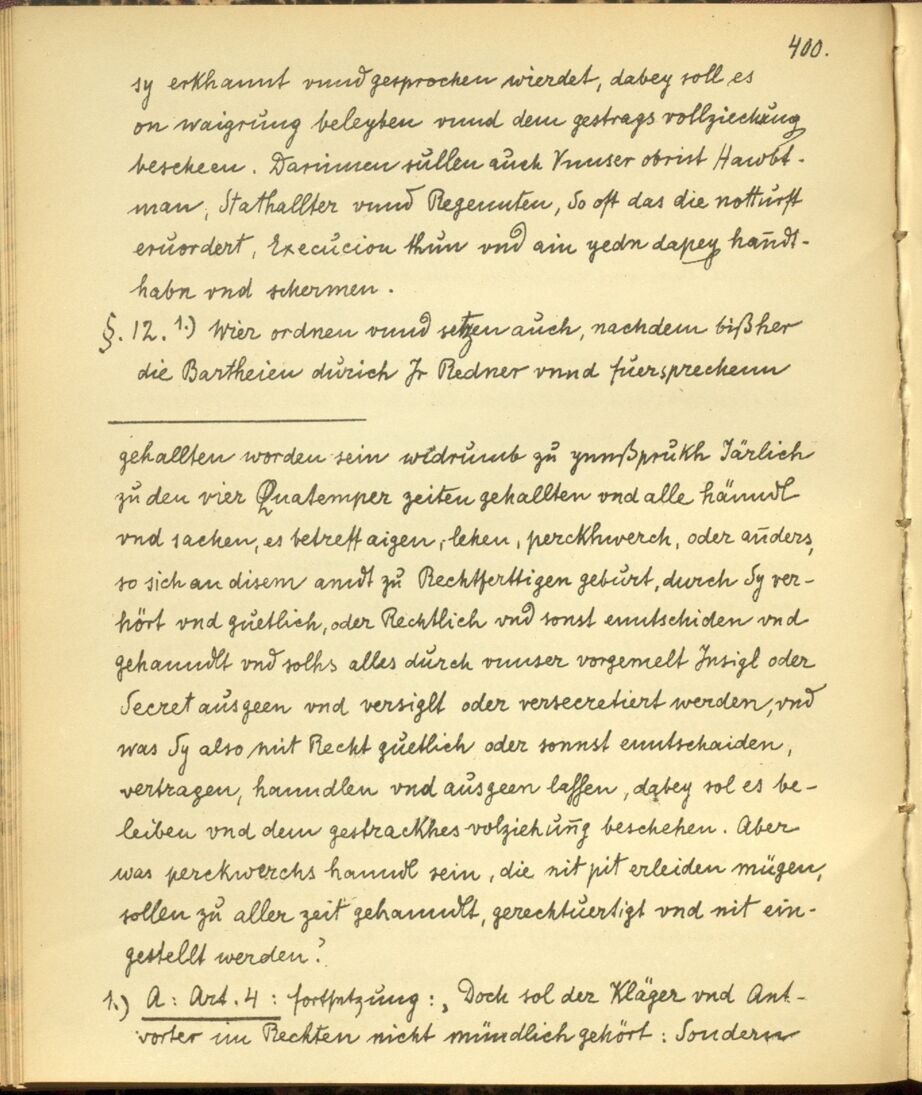 400.
sy erkhannt vnnd gesprochen wierdet, dabey soll es
on waigrung beleyben vnnd dem gestrags vollziechung
bescheen. Darinnen sullen auch Vnnser obrist Hawbt-
man, Stathallter vnnd Regennten, So oft das die notturft
eruordert, Execucion thun vnd ain yedn dapey hanndt-
habn vnd schermen.
§. 12. 1.) Wier ordnen vnnd setzen auch, nachdem bißher
die Bartheien durich Jr Redner vnnd fuersprechenn
gehallten worden sein widrumb zu ynnßprukh Järlich
zu den vier Quatemper zeiten gehallten vnd alle hänndl
vnd sachen, es betreff aigen, lehen, perckhwerch, oder annders,
so sich an disem ambt zu Rechtferttigen geburt, durch Sy ver-
hört vnd guetlich, oder Rechtlich vnd sonst enntschiden vnd
gehanndlt vnd solhs alles durch vnnser vorgemelt Insigl oder
Secret ausgeen vnd versiglt oder versecretiert werden, vnd
was Sy also mit Recht guetlich oder sonnst enntschaiden,
vertragen, hanndlen vnd ausgeen lassen, dabey sol es be-
leiben vnd dem gestrackhes volziehung beschehen. Aber
was perckwerchs hanndl sein, die nit pit erleiden mügen,
sollen zu aller zeit gehanndlt, gerechtuertigt vnd nit ein-
gestellt werden."
1.) A: Art. 4: fortsetzung: „Doch sol der Kläger vnd Ant-
vorter im Rechten nicht mündlich gehört: Sondern